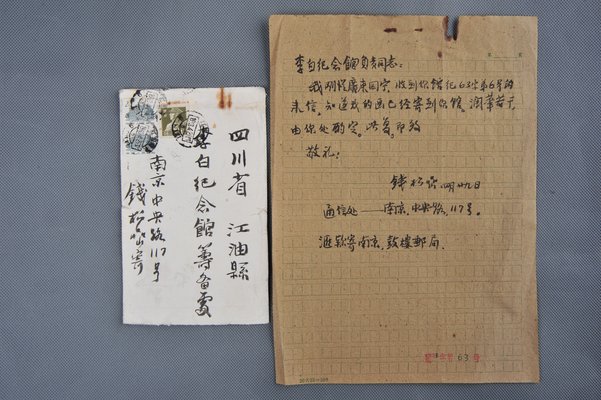 四川省 江油縣
李白纪念館筹备處
南京中央路117号
錢松喦寄
李白纪念館负责同志:
我刚從廣東回宁,收到你館纪63字第6号的
来信,知道我的画已经寄到你馆。润筆若干
由你处酌定。此复,即致
敬礼!
錢松喦 四月廿九日
通信处——南京,中央路,117号。
滙款寄南京,鼓樓邮局。
63